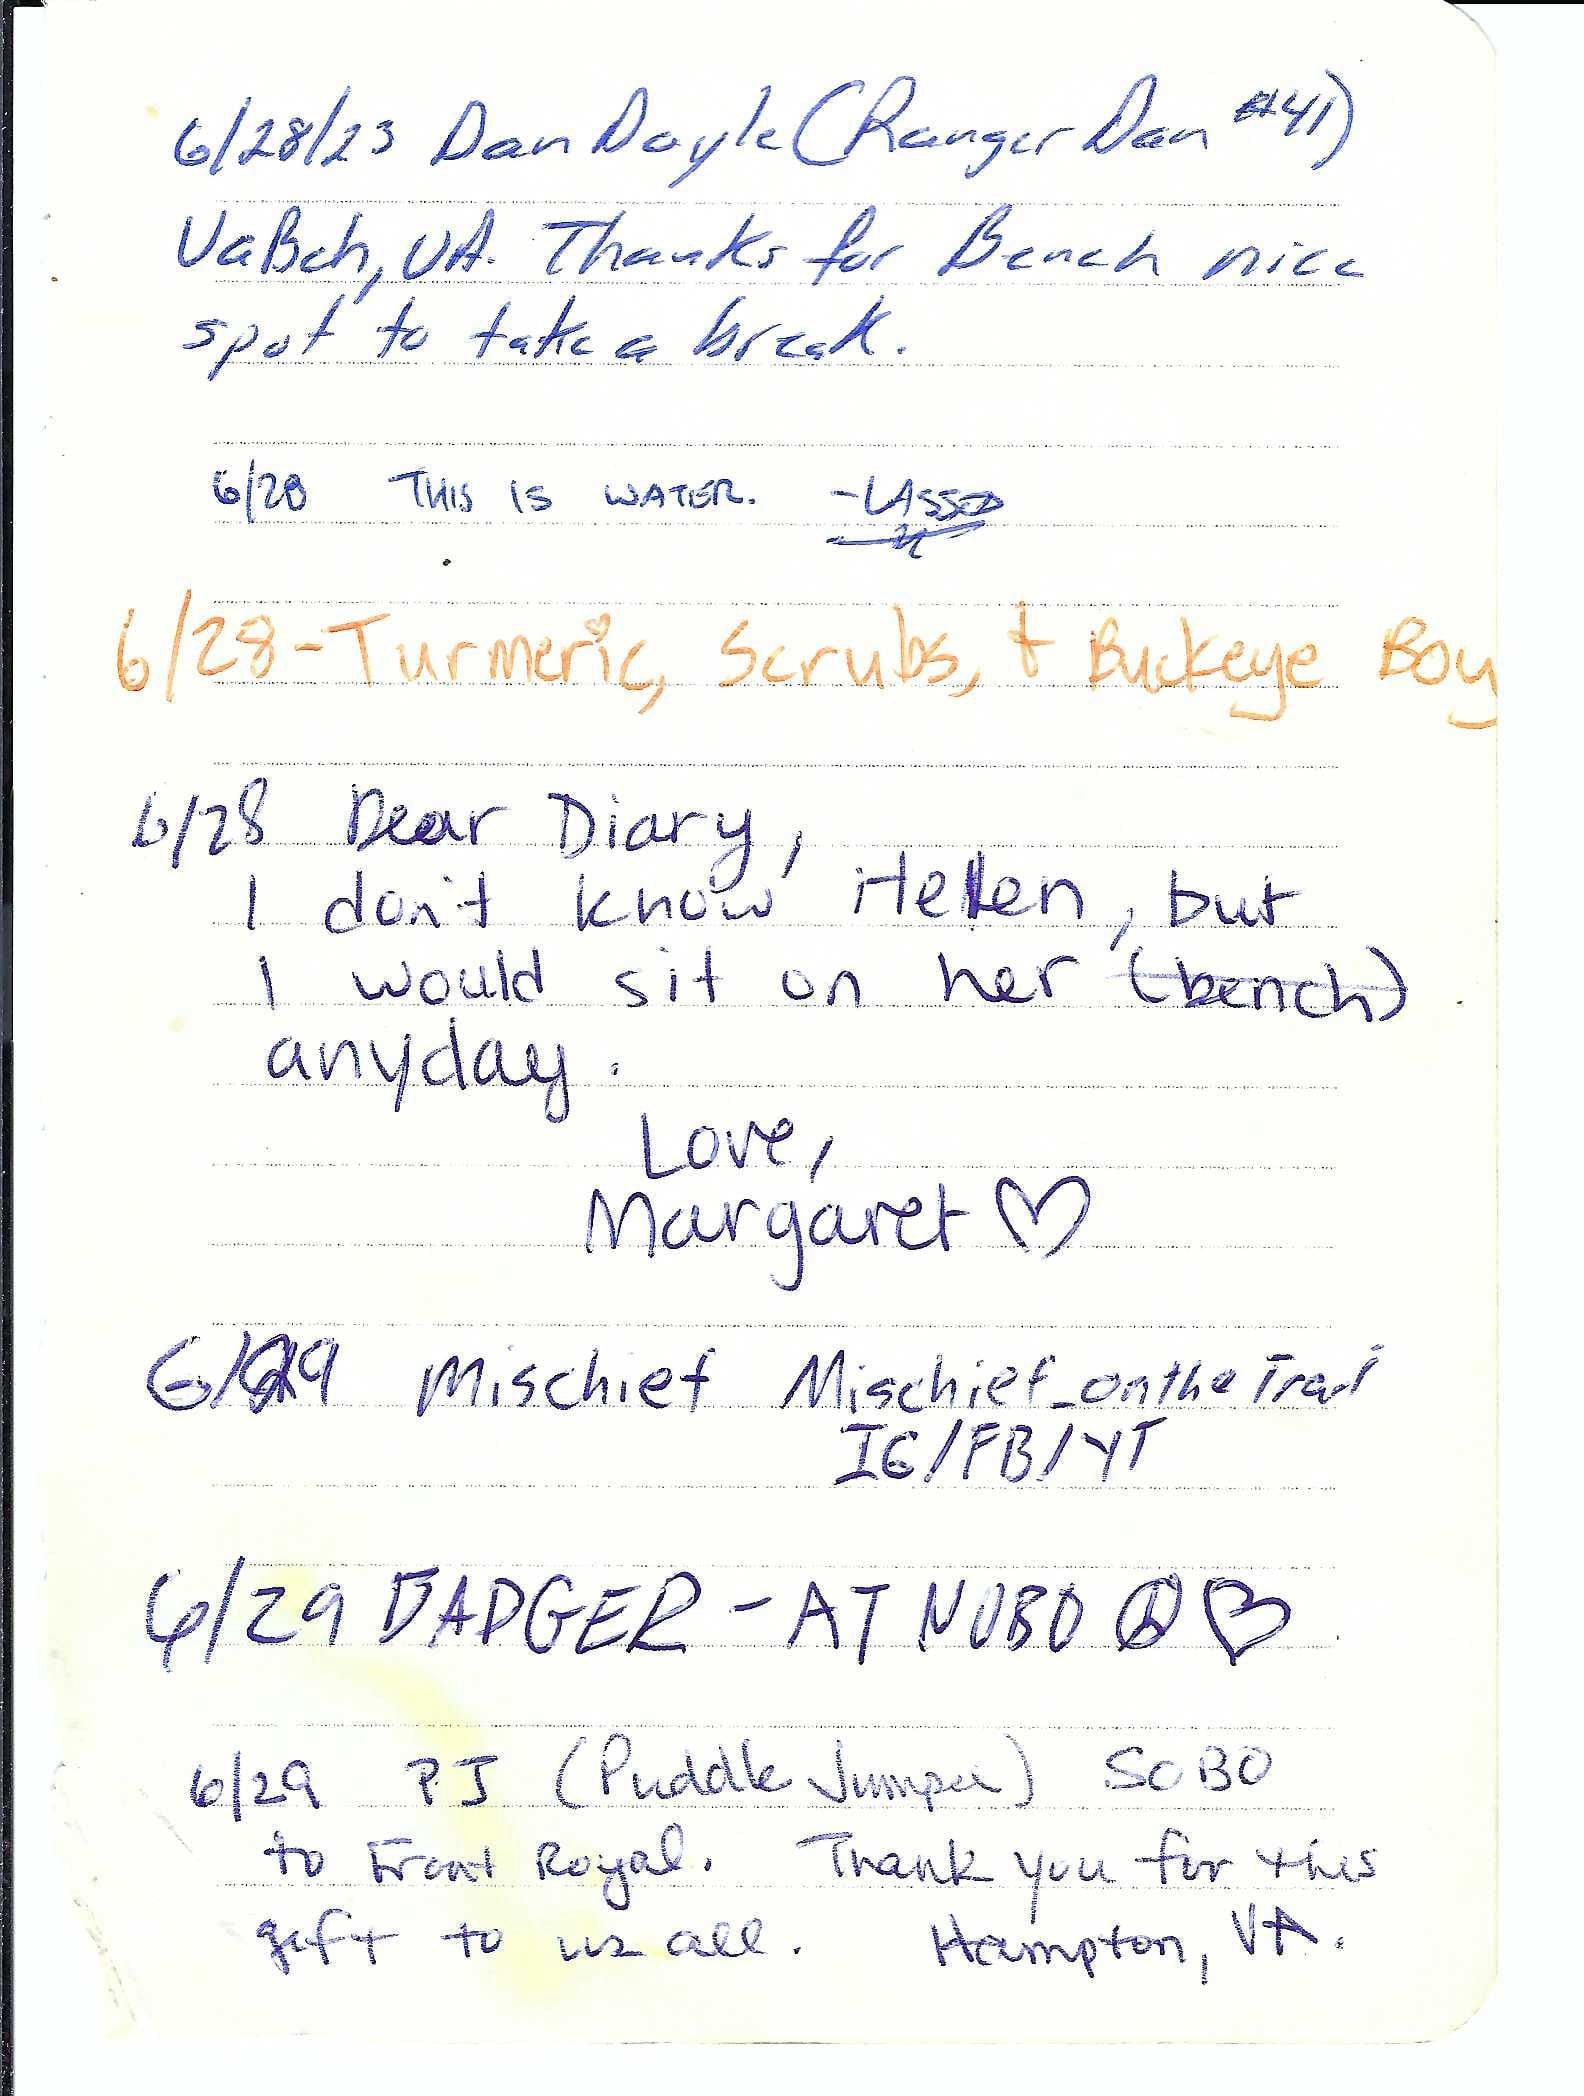 6/28/23 Dan Doyle (Ranger Dan #41)
VaBch, VA. Thanks for Bench nice
spot to take a break.
6/28 THIS IS WATER. -LASSO
6/28-Turmeric, Scrubs, + Buckeye Boy
6/28 Dear Diary,
I don't know Helen, but
I would sit on her (bench)
anyday.
Love,
Margaret ♡
6/29 Mischief Mischief_ontheTrail
IG/FB/YT
6/29 BADGER - AT NOBO ☮ ♡
6/29 PJ (Puddle Jumper) SOBO
to Front Royal. Thank you for this
gift to us all. Hampton, VA.